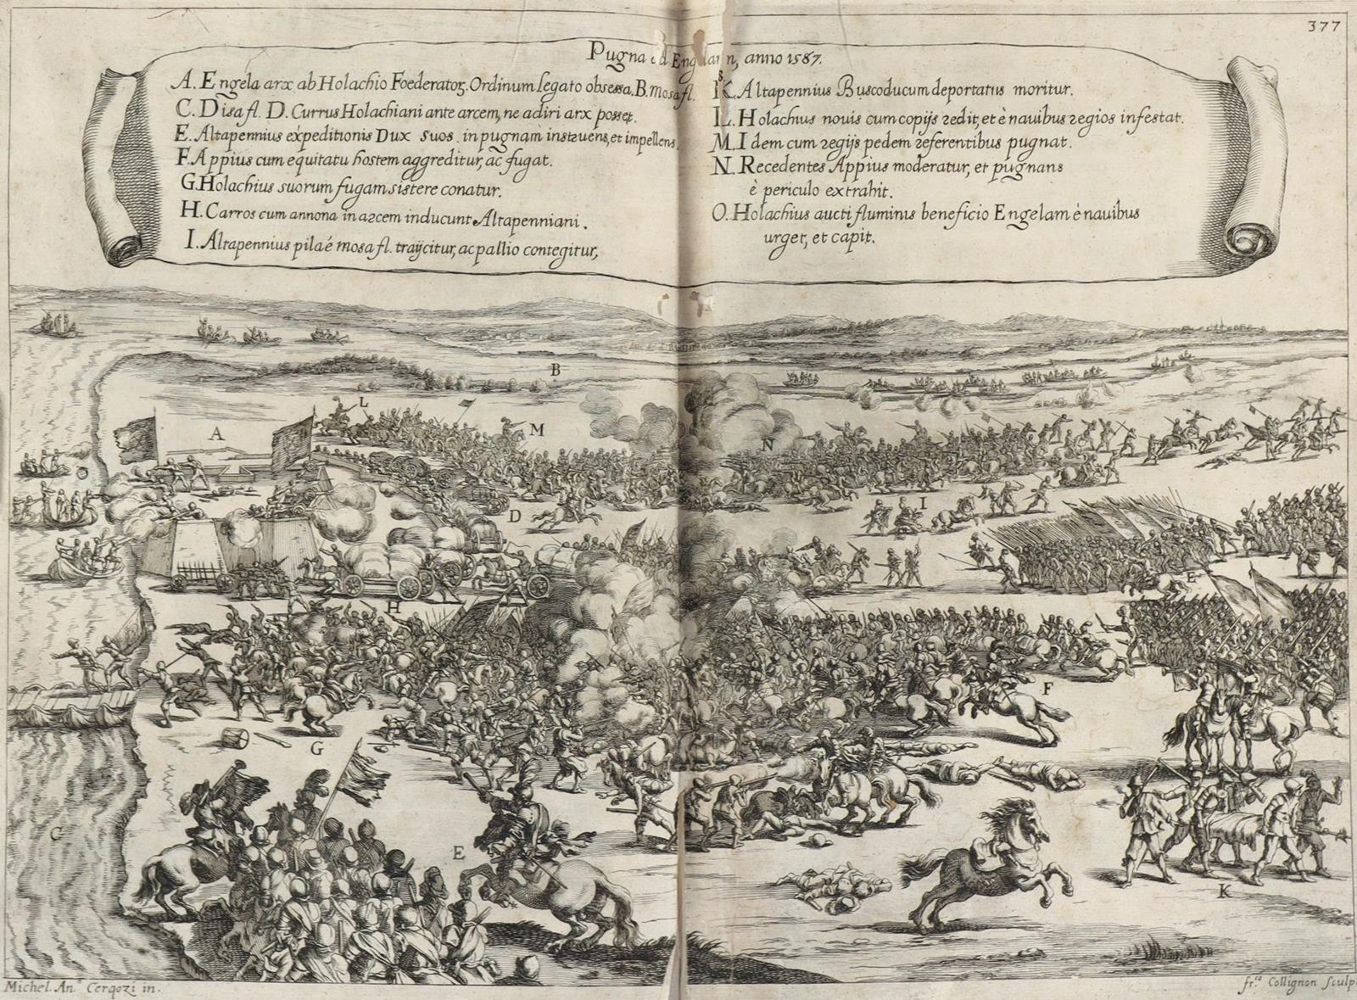 377
Pugna ad Engelam, anno 1587.
A. Engela arx ab Holachio Foederator. Ordinum legato obsessa. B. Mosa fl.
C. Disa fl. D. Currus Holachiani ante arcem, ne adiri arx posset.
E. Altapennius expeditionis Dux suos in pugnam instruens, et impellens.
F. Appius cum equitatu hostem aggreditur, ac fugat.
G. Holachius suorum fugam sistere conatur.
H. Carros cum annona in arcem inducunt Altapenniani.
I. Altapennius pila é mosa fl. traÿcitur, ac pallio contegitur,
K. Altapennius Buscoducum deportatus moritur.
L. Holachius nouis cum copijs redit, et è nauibus regios infestat.
M. Idem cum regijs pedem referentibus pugnat.
N. Recedentes Appius moderatur, et pugnans
è periculo extrahit.
O. Holachius aucti fluminis beneficio Engelam è nauibus
urget, et capit.
B
L
A
M
N
O
I
D
E
H
F
G
C
E
K
Michel. An. Cerqozi in.
Collignon Sculp